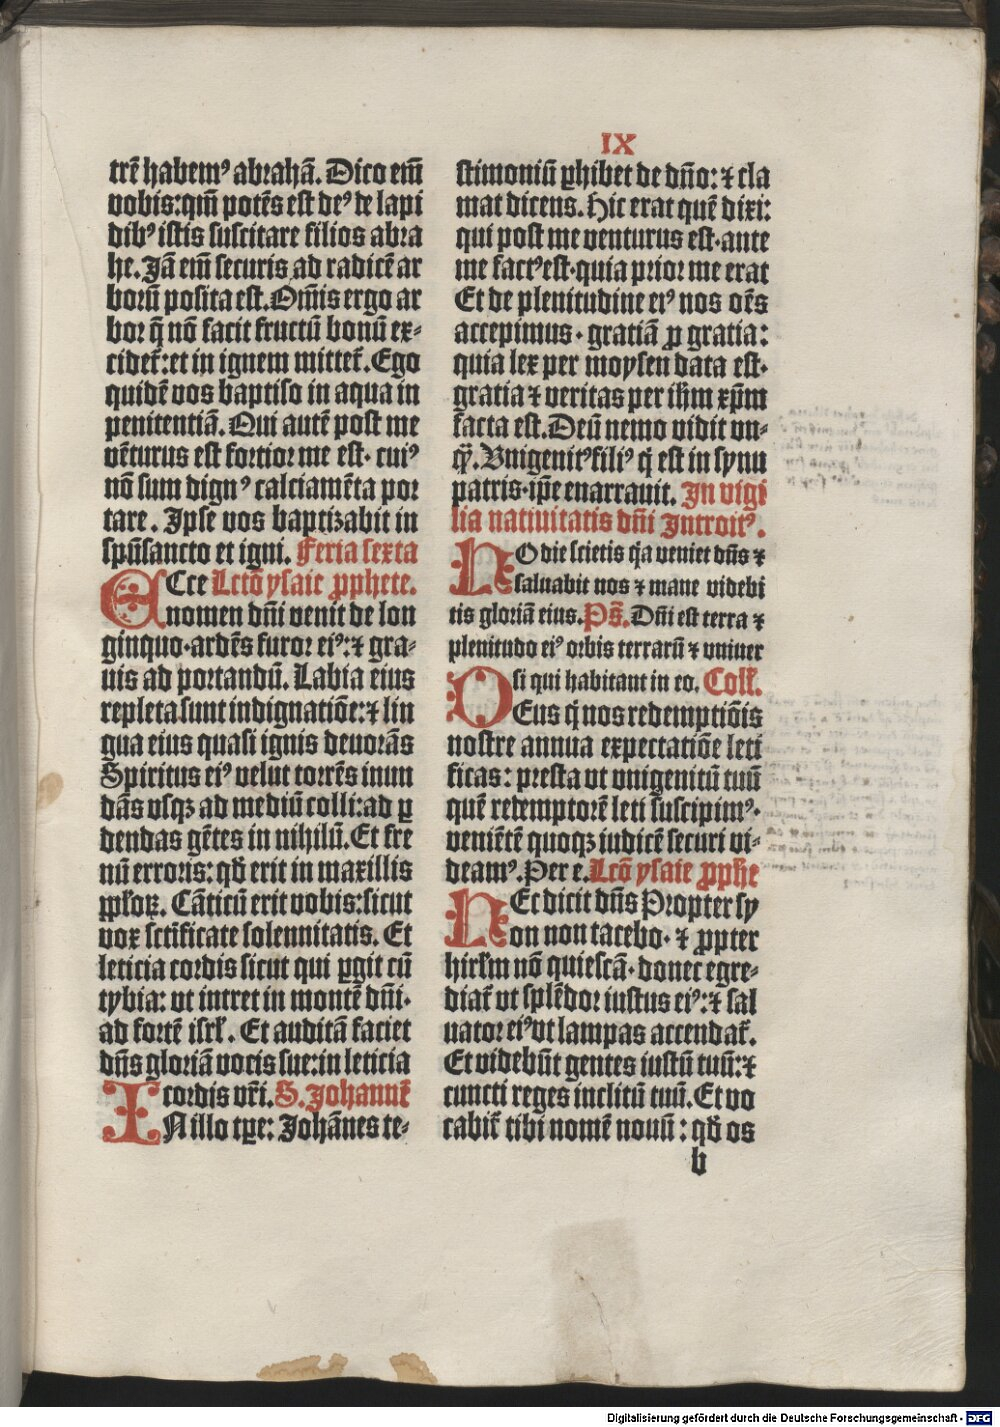 IX
trē habemꝰ abrahā. Dico em̄
vobis: qm̄ potēs est deꝰ de lapi
dibꝰ istis suscitare filios abra
he. Jā em̄ securis ad radicē ar
borū posita est. Om̄is ergo ar
bor q̄ nō facit fructū bonū ex⸗
cidet᷑: et in ignem mittet᷑. Ego
quidē vos baptiso in aqua in
penitentiā. Qui autē post me
vēturus est fortior me est· cuiꝰ
nō sum dignꝰ calciamēta por
tare. Jpse vos baptizabit in
spūsancto et igni. Feria sexta
Ecce Lctō ysaie ꝓphete.
nomen dn̄i venit de lon
ginquo· ardēs furor eiꝰ: ⁊ gra⸗
uis ad portandū. Labia eius
repleta sunt indignatiōe: ⁊ lin
gua eius quasi ignis deuorās
Spiritus eiꝰ velut torrēs inun
dās vsqꝫ ad mediū colli: ad ꝑ
dendas gētes in nihilū. Et fre
nū erroris: qd̄ erit in maxillis
ppl'oꝝ. Cāticū erit vobis: sicut
vox sctīficate solennitatis. Et
leticia cordis sicut qui ꝑgit cū
tybia: vt intret in montē dn̄i·
ad fortē isrl'. Et auditā faciet
dn̄s gloriā vocis sue: in leticia
cordis vr̄i. S. Johannē
IN illo tꝑe: Johānes te⸗
stimoniū ꝑhibet de dn̄o: ⁊ cla
mat dicens. Hic erat quē dixi:
qui post me venturus est· ante
me factꝰ est· quia prior me erat
Et de plenitudine eiꝰ nos oēs
accepimus· gratiā ꝓ gratia:
quia lex per moysen data est·
gratia ⁊ veritas per ih̄m xp̄m
facta est. Deū nemo vidit vn⸗
qꝫ̄. Vnigenitꝰ filiꝰ q̄ est in synu
patris· ip̄e enarrauit. Jn vigi
lia natiuitatis dn̄i Introitꝰ.
HOdie scietis q̄a veniet dn̄s ⁊
saluabit nos ⁊ mane videbi
tis gloriā eius. Ps̄. Dn̄i est terra ⁊
plenitudo eiꝰ orbis terrarū ⁊ vniuer
si qui habitant in eo. Coll'.
DEus q̄ nos redemptiōis
nostre annua expectatiōe leti
ficas: presta vt vnigenitū tuū
quē redemptorē leti suscipimꝰ·
veniētē quoqꝫ iudicē securi vi⸗
deamꝰ. Per e. Lctō ysaie ꝓphe
HEc dicit dn̄s Propter sy
on non tacebo· ⁊ ꝓpter
hirl'm nō quiescā· donec egre⸗
diat᷑ vt splēdor iustus eiꝰ: ⁊ sal
uator eiꝰ vt lampas accendat᷑.
Et videbūt gentes iustū tuū: ⁊
cuncti reges inclitū tuū. Et vo
cabit᷑ tibi nomē nouū: qd̄ os
b
Digitalisierung gefördert durch die Deutsche Forschungsgemeinschaft - DFG